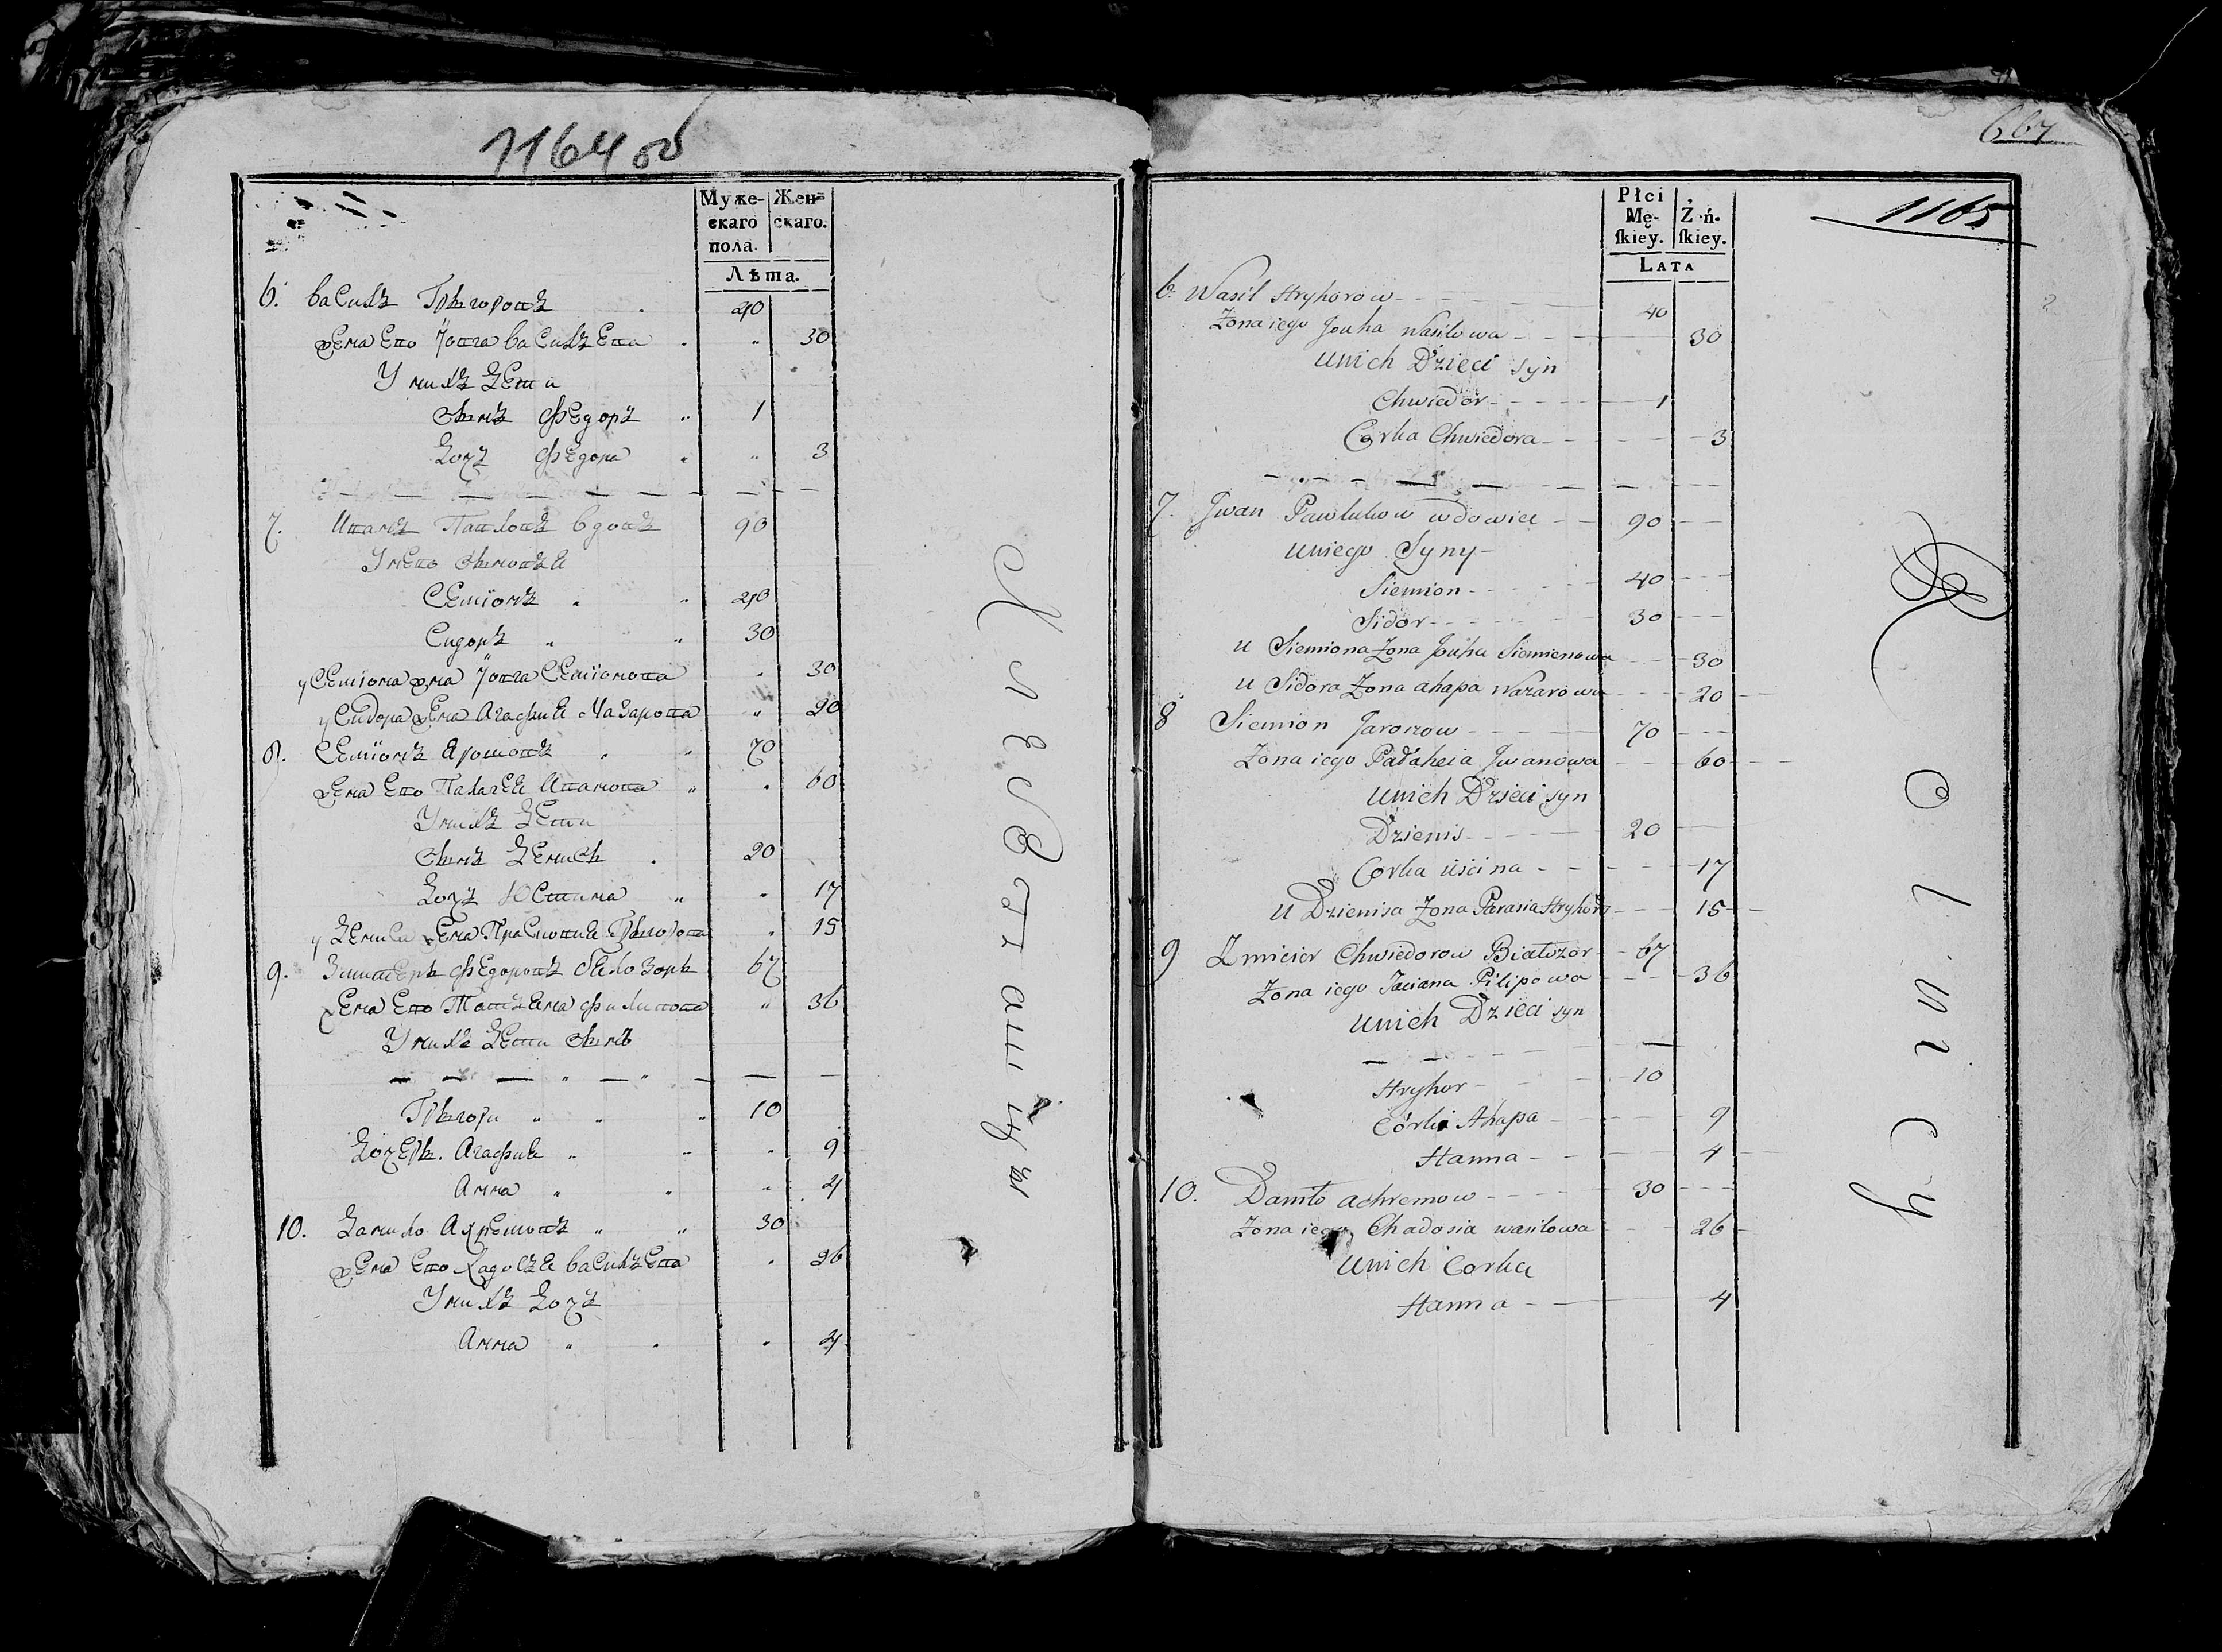 1164 об
Муже-
скаго
пола.
Жен=
скаго.
Лѣта.
6. Василь Григоровъ 40
жена Его Ювга Васильева 30
У нихъ дети
Сынъ Федоръ 1
дочь Федора 3
7. Иванъ Павловъ вдовъ 90
У нево сыновья
Семіонъ 40
Сидоръ 30
у Семіона жна Ювга Семіонова 30
у Сидора жена Агафия Назарова 20
8. Семіонъ Яромовъ 70
жена Ево Палагея Иванова 60
У нихъ дети
Сынъ Денисъ 20
дочь Юстина 17
у Дениса жена Прасковия Григорова 15
9. Зминтеръ Федоровъ Бѣлозоръ 67
жена Ево Татьяна Филипова 36
У нихъ дети сынъ
Григори 10
дочери. Агафия 9
Анна 4
10. Данило Ахремовъ 30
жена Ево Хадосья Васильева 26
У нихъ дочь
Анна 4
667
1165
Płci
Mę-
ſkiey.
Żeń-
ſkiey.
LATA
6. Wasil Hryhorow 40
Zona iego Jouha Wasilowa 30
unich Dzieci syn
Chwiedor 1
Corka Chwiedora 3
7. Jwan Pawlukow wdowiec 90
uniego Syny
Siemion 40
Sidor 30
u Siemiona Zona Jouha Siemienowa 30
u Sidora Zona ahapa Nazarowa 20
8 Siemion Jaromow 70
Zona iego Padaheia Jwanowa 60
unich Dzieci syn
Dzienis 20
Corka uścina 17
u Dzienisa Zona Parasia Hryhoro 15
9 Zmicier Chwiedorow Białozor 67
Zona iego Taciana Pilipowa 36
unich Dzieci syn
Hryhor 10
Córki Ahapa 9
Hanna 4
10. Daniło achremow 30
Zona iego Chadosia wasilowa 26
unich Corka
Hanna 4
R o l n i c y